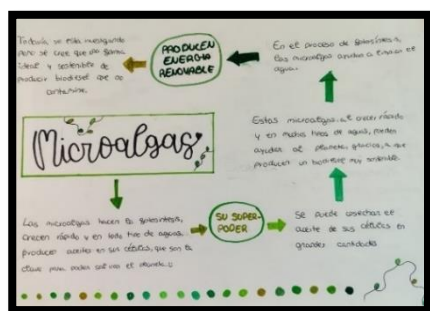 Todavía se está investigando
pero se cree que una forma
ideal y sostenible de
producir biodiesel que no
contamine.
PRODUCEN
ENERGÍA
RENOVABLE
En el proceso de fotosíntesis,
las microalgas ayudan a limpiar el
agua.
Microalgas
Estas microalgas, al crecer rápido
y en muchos tipos de agua, pueden
ayudar al planeta, gracias a que
producen un biodiesel muy sostenible.
Las microalgas hacen la fotosíntesis,
crecen rápido y en todo tipo de aguas,
producen aceites en sus células, que son la
clave para poder salvar el planeta.
SU SUPER-
PODER
Se puede cosechar el
aceite de sus células en
grandes cantidades